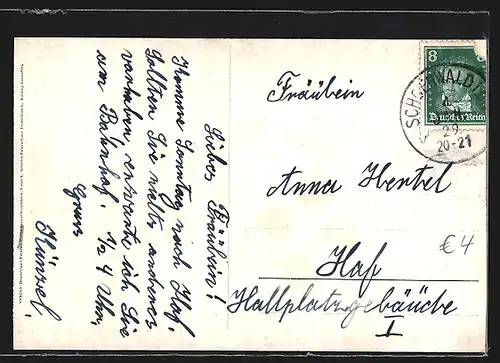 Liebes Fräulein!
Komme Sonntag nach Hof.
Sollten Sie nichts anderes
vorhaben erwarte ich Sie
am Bahnhof. ½ 4 Uhr.
Gruss
Künzel.
8 8
Deutsches Reich
SCHÖNWALD
29
20-21
Fräulein
Anna Hertel
Hof
Hallplatzgebäude
I
€4